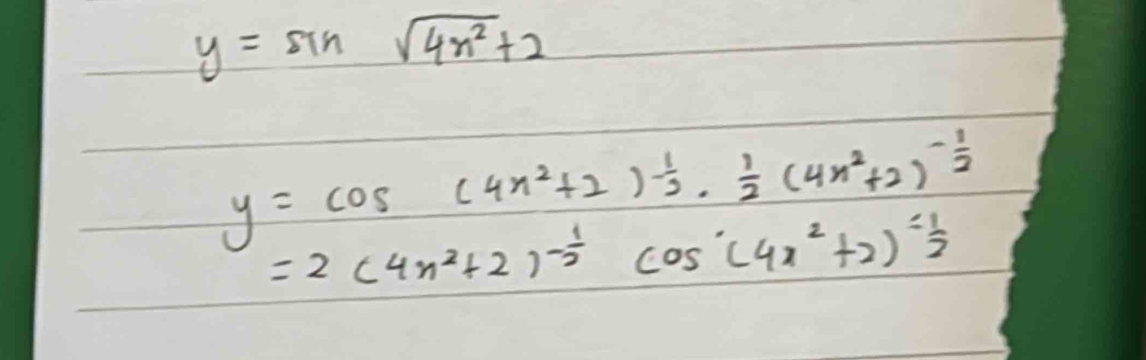 y = sin √4x² + 2
y = cos (4x²+2)^-½ . ½ (4x²+2)^-½
= 2 (4x²+2)^-½ cos (4x²+2)^-½